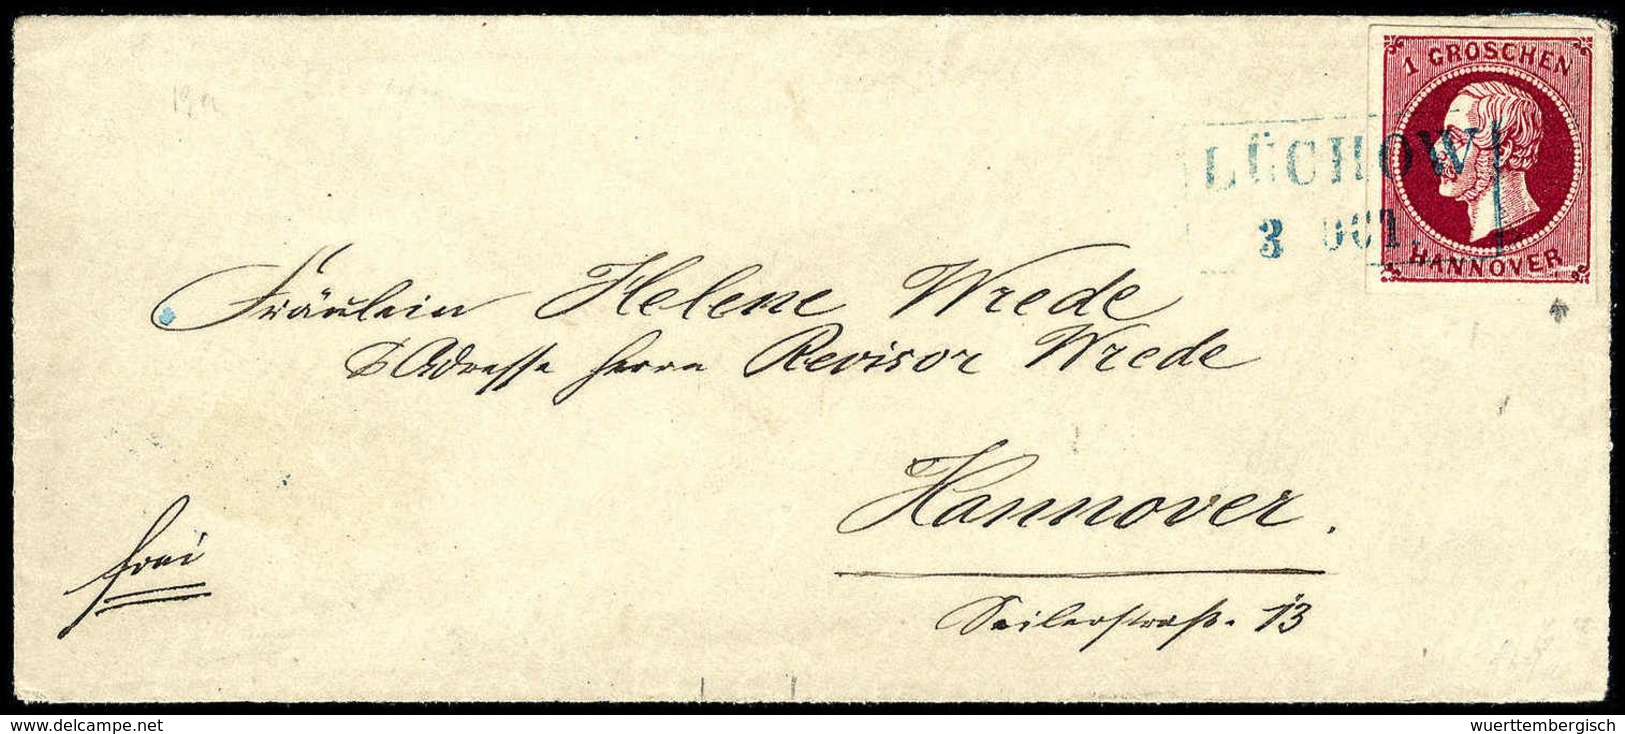 1 GROSCHEN
HANNOVER
LÜCHOW
3 OCT.
Fräulein Helene Wrede
Adresse Herrn Revisor Wrede
Hannover.
frei
Seilerstraß. 13
delcampe.net
wuerttembergisch